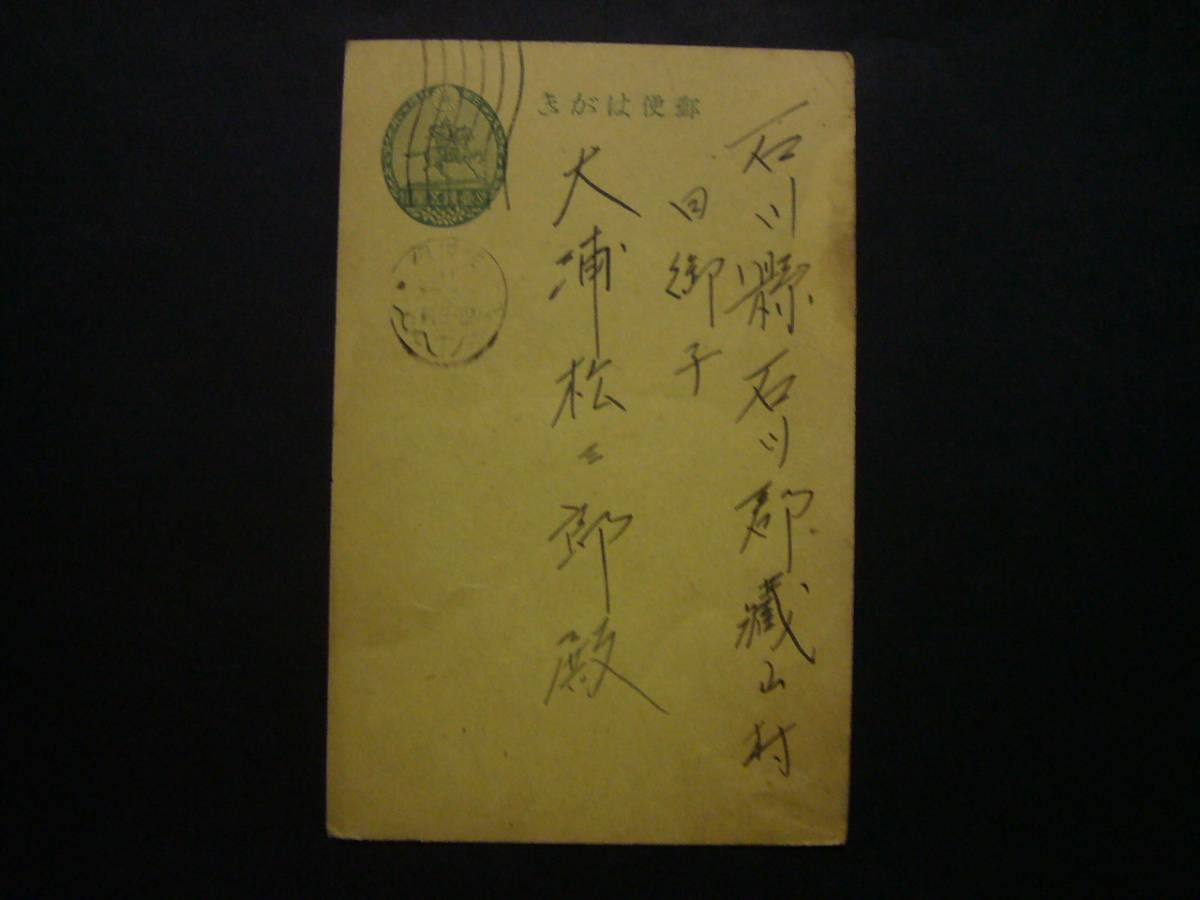 郵便はがき
石川縣石川郡藏山村
日御子
大浦松二郎殿